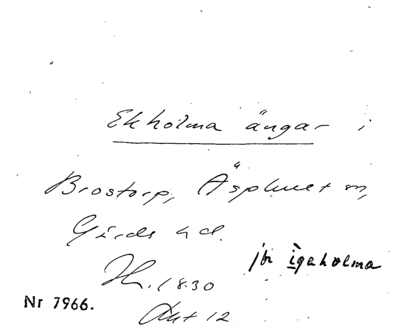 Ekholma ängar i
Brostorp, Äsphult sn,
Gärds hd.
H. 1830
jfr igaholma
Akt 12
Nr 7966.